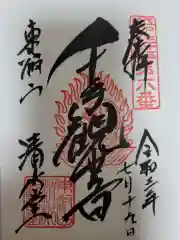 奉拝
令和三年
七月十九日
千手観音
東叡山
清水堂